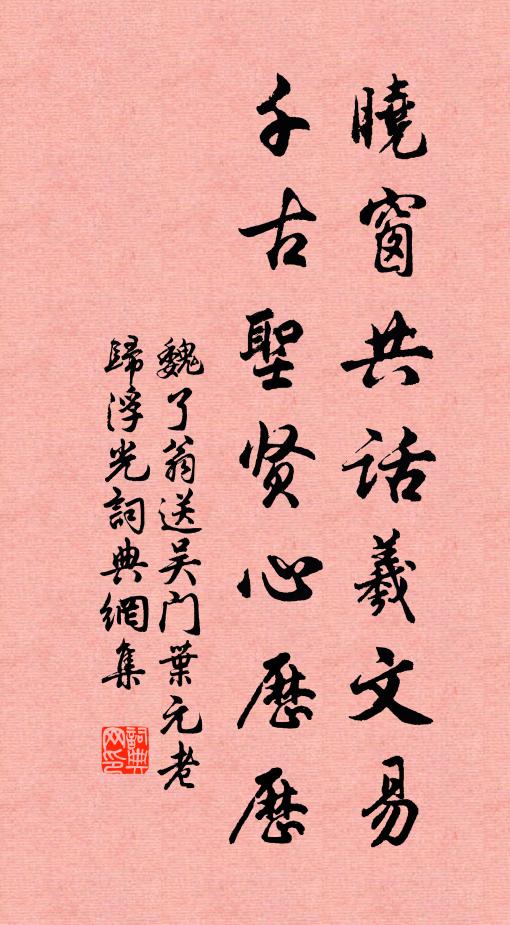 曉窗共話羲文易
千古聖贤心歷歷
魏了翁送吴门葉元老
歸浮光詞典網集
詞典網印